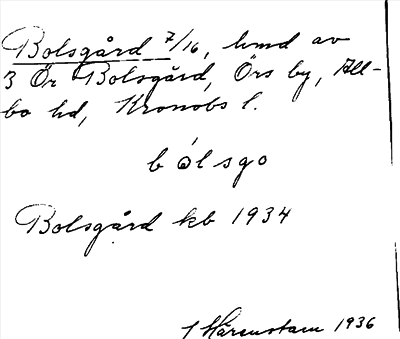 Bolsgård 7/16, hmd av
3 Ör Bolsgård, Örs by, All-
bo hd, Kronobs l.
bólsgo
Bolsgård kb 1934
Hårenstam 1936